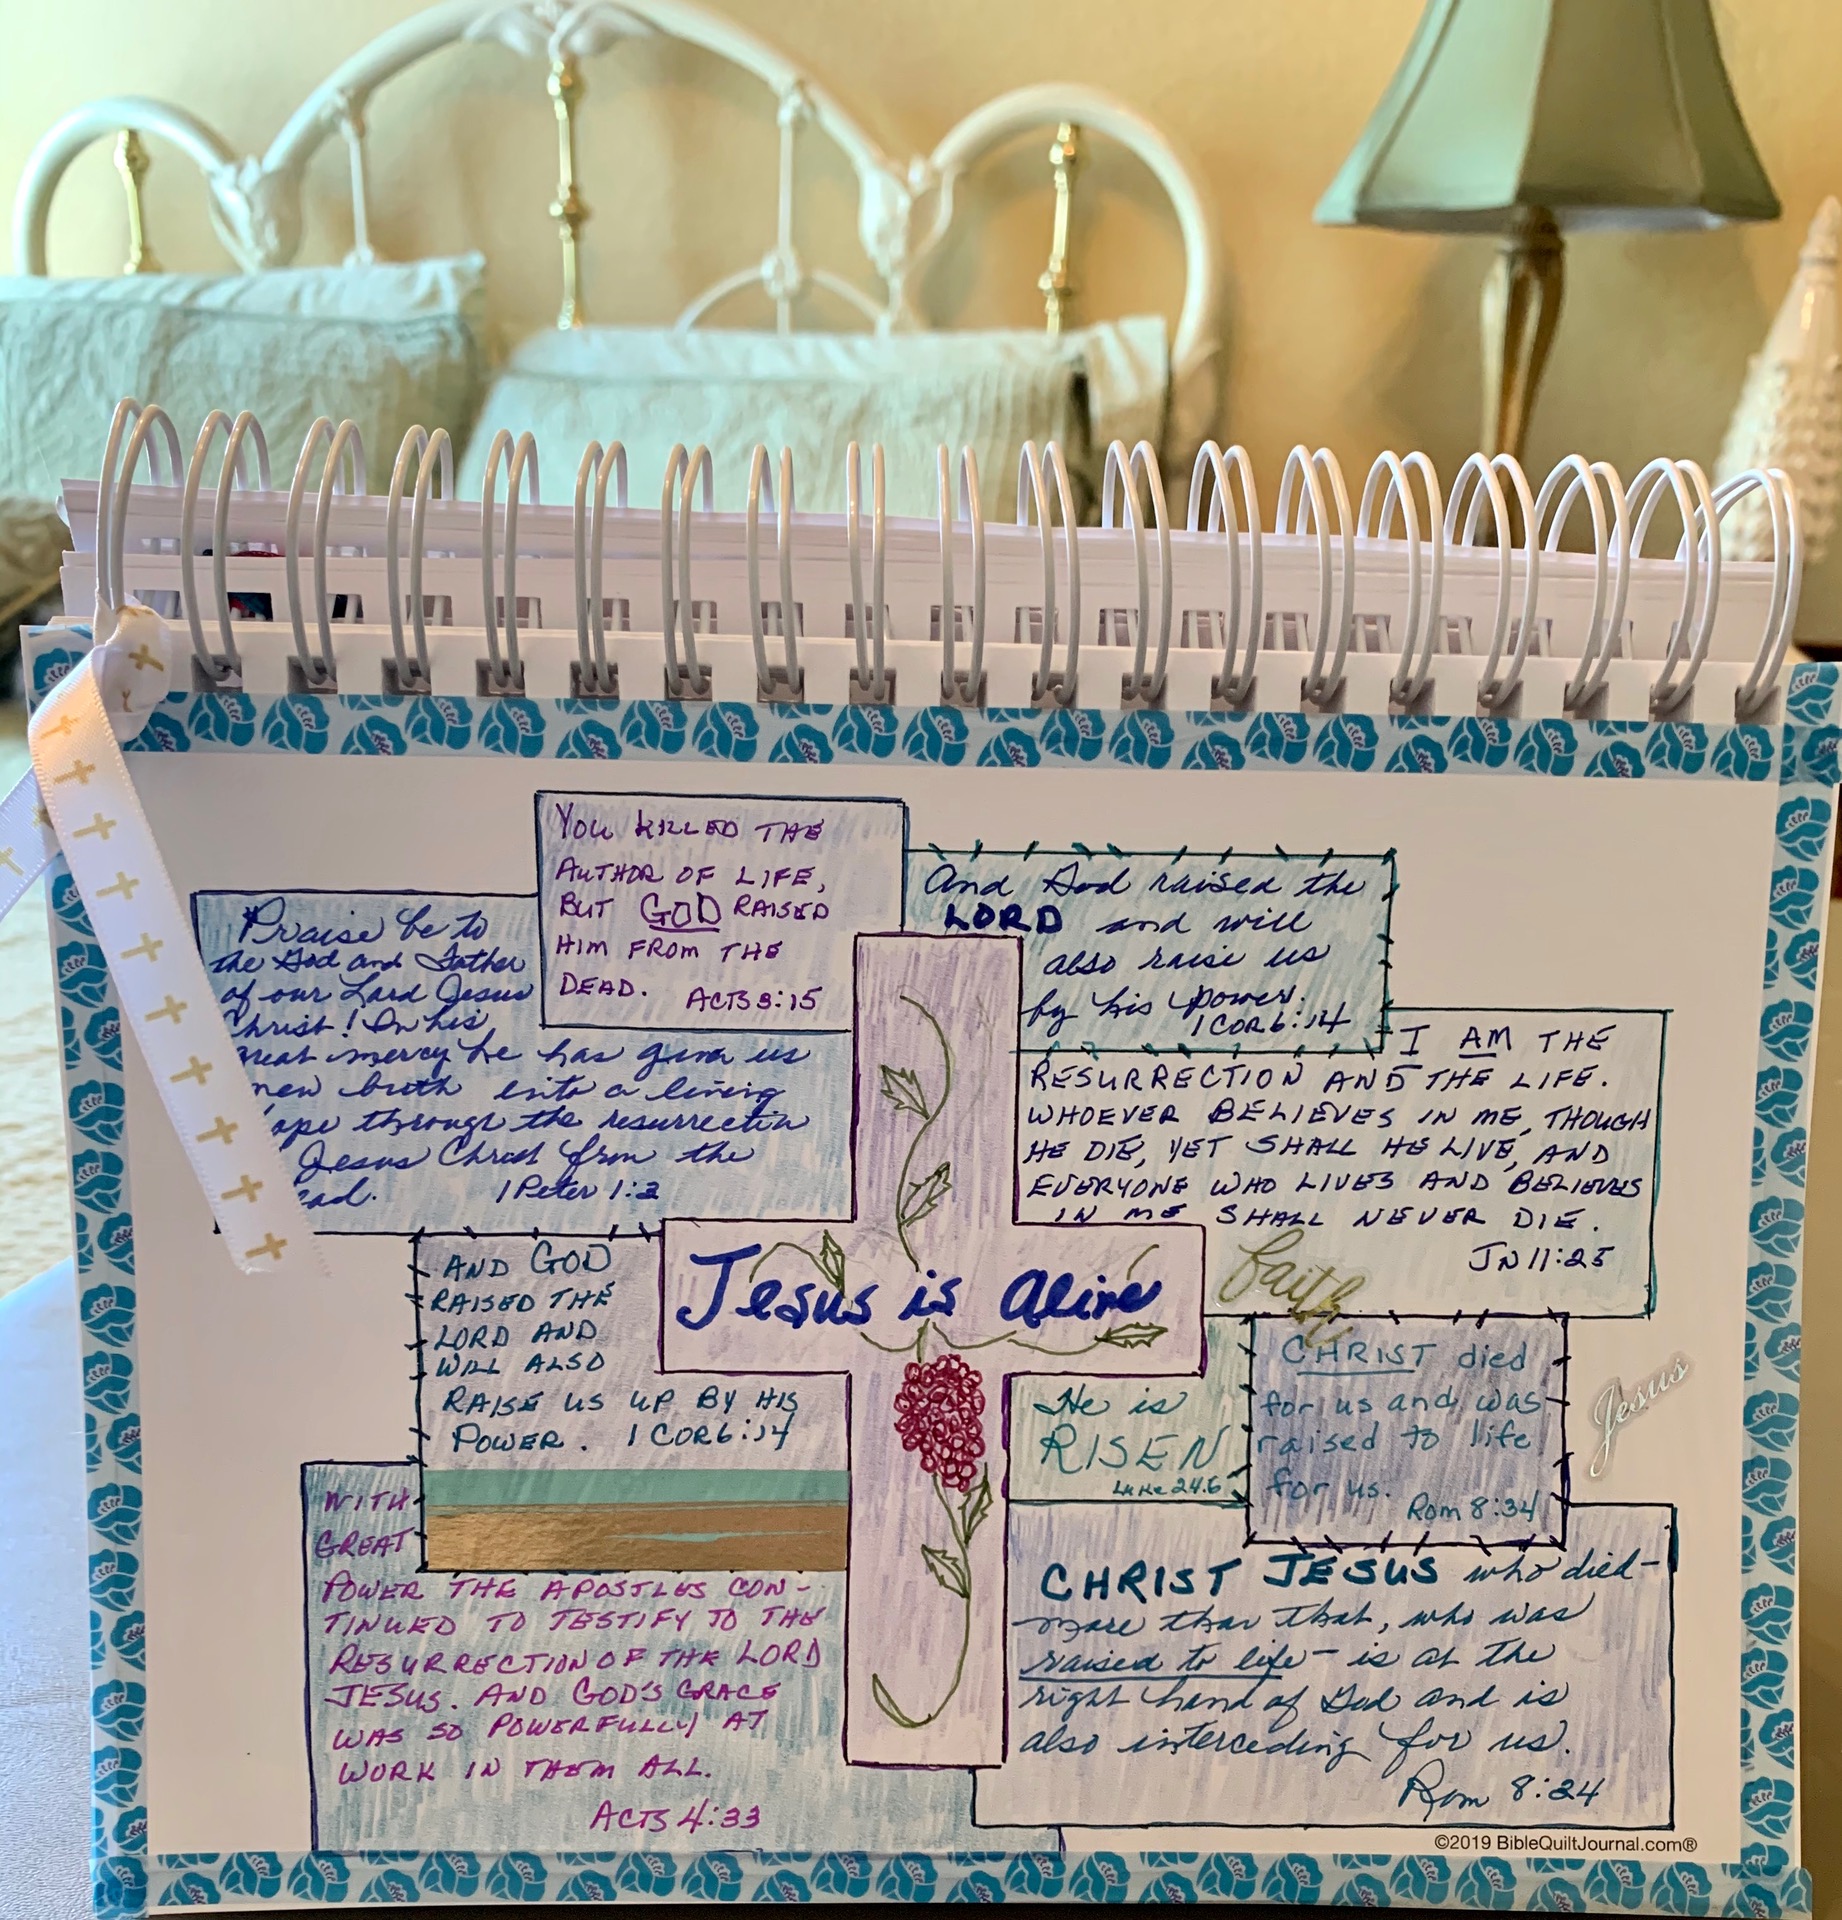 YOU KILLED THE
AUTHOR OF LIFE,
BUT GOD RAISED
HIM FROM THE
DEAD. ACTS 3:15
And God raised the
LORD and will
also raise us
by his power.
1 COR 6:14
Praise be to
the God and Father
of our Lord Jesus
Christ! In his
great mercy he has given us
new birth into a living
ope through the resurrectin
Jesus Christ from the
ead. 1 Peter 1:3
I AM THE
RESURRECTION AND THE LIFE.
WHOEVER BELIEVES IN ME, THOUGH
HE DIE, YET SHALL HE LIVE, AND
EVERYONE WHO LIVES AND BELIEVES
IN ME SHALL NEVER DIE.
JN 11:25
AND GOD
RAISED THE
LORD AND
WILL ALSO
RAISE US UP BY HIS
POWER. 1 COR 6:14
Jesus is alive
faith
He is
RISEN
Luke 24:6
CHRIST died
for us and was
raised to life
for us.
Rom 8:34
Jesus
WITH
GREAT
POWER THE APOSTLES CON-
TINUED TO TESTIFY TO THE
RESURRECTION OF THE LORD
JESUS. AND GOD'S GRACE
WAS SO POWERFULLY AT
WORK IN THEM ALL.
ACTS 4:33
CHRIST JESUS who died-
more than that, who was
raised to life - is at the
right hand of God and is
also interceding for us.
Rom 8:24
©2019 BibleQuiltJournal.com®